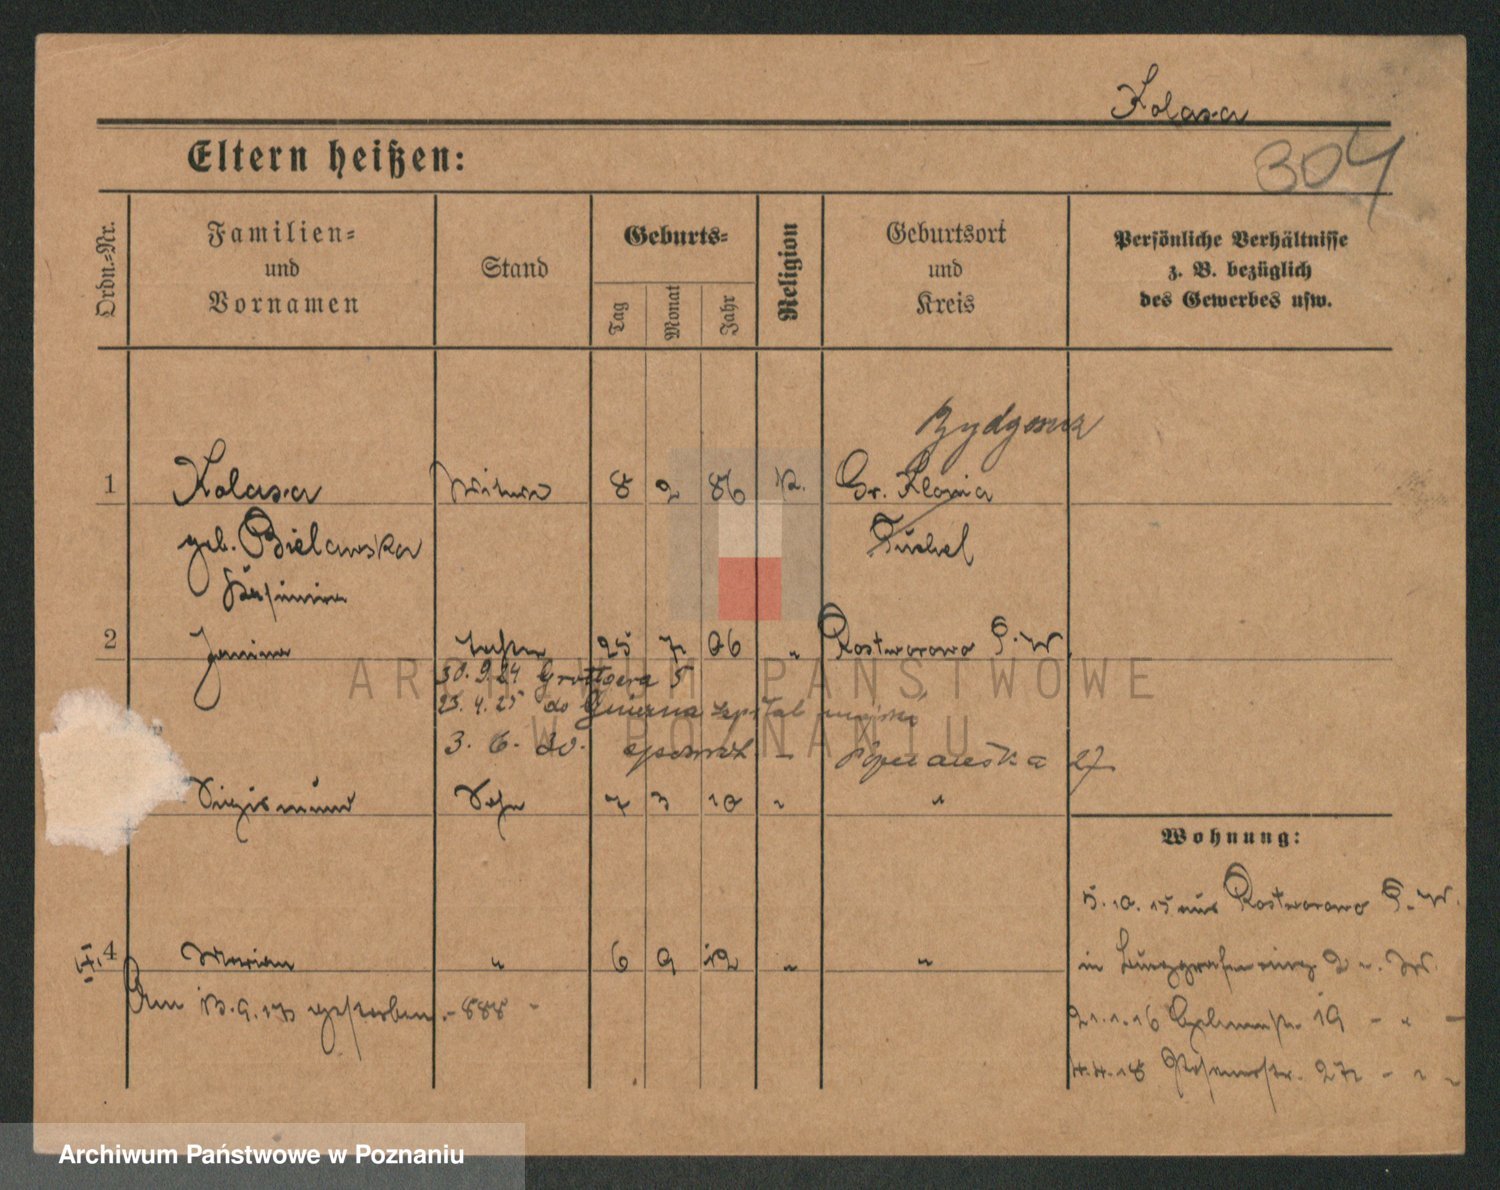 Kolasa
304
Eltern heißen:
Ordn.-Nr.
Familien-
und
Vornamen
Stand
Geburts-
Tag
Monat
Jahr
Religion
Geburtsort
und
Kreis
Persönliche Verhältnisse
z. B. bezüglich
des Gewerbes usw.
1 Kolasa Witwe 8 2 86 K. Gr. Klonia
geb. Bielawska Tuchel
Kasimira
2 Janina Tochter 25 7 06 " Rostworowo P. W.
30.9.24 Grottgera 5
23.4.25 do szpital
3. 6. 30. Poznańska 27
Sigismund Sohn 7 3 10 " "
Wohnung:
5.10.15 aus Rostworowo P. W.
4 Marian " 6 9 12 " "
in Burggrafenring 2
Am 13.9.17 gestorben. - 888 -
21.1.16 19 - " -
4.4.18 Posenerstr. 27 - " -
ARCHIWUM PAŃSTWOWE
W POZNANIU
Archiwum Państwowe w Poznaniu